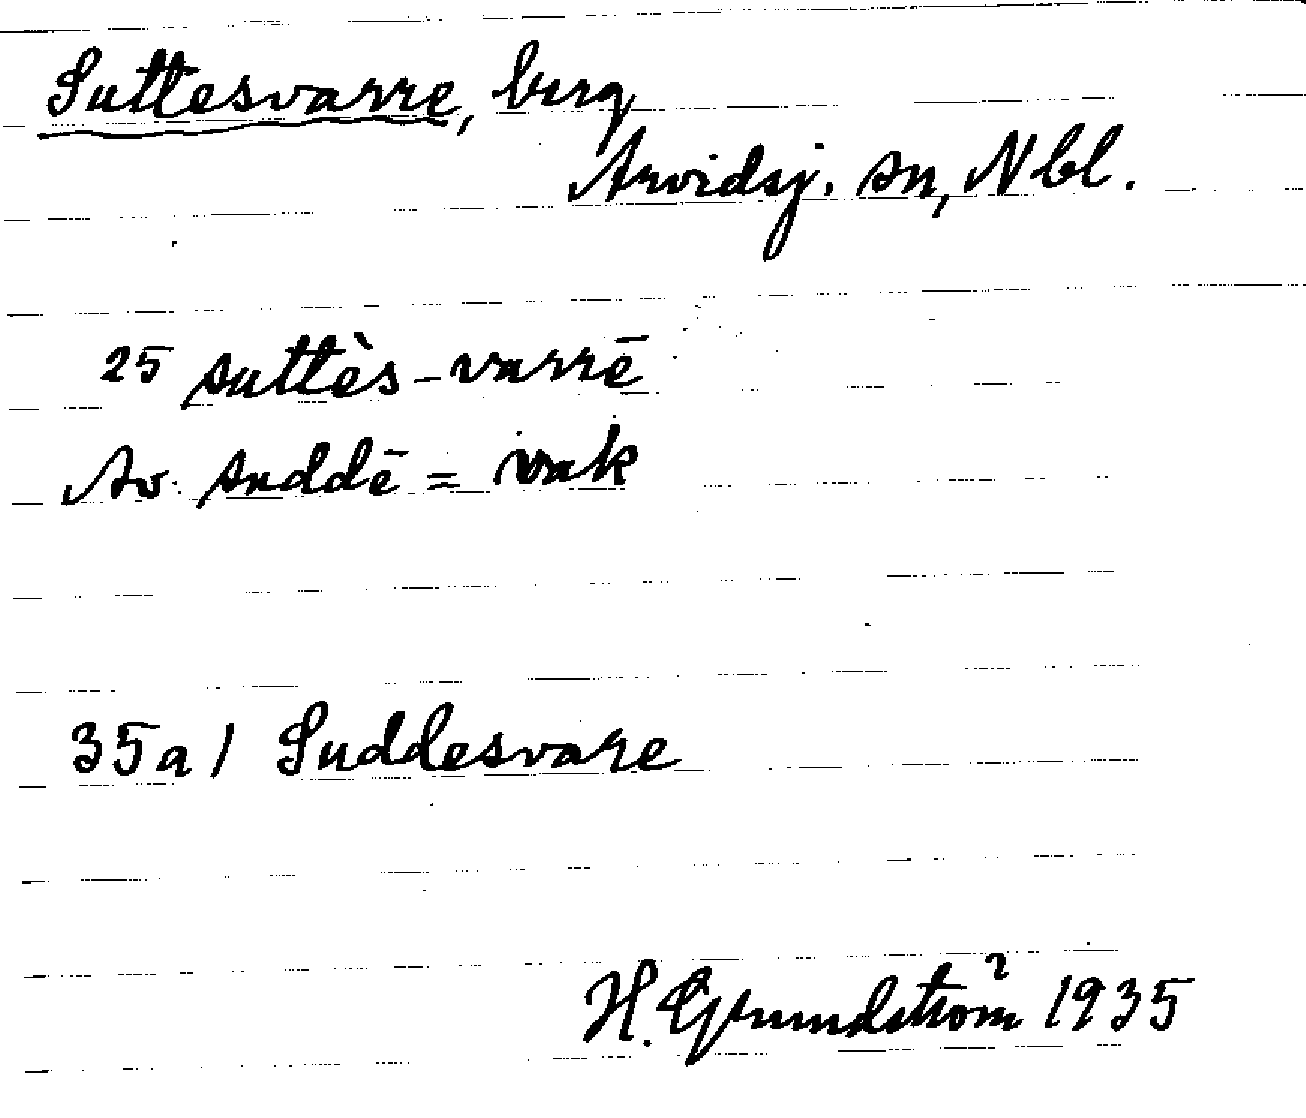 Suttesvarre, berg
Arvidsj. sn, Nbl.
25 suttès-varrē
Av. suddē = vak
35a/ Suddesvare
H. Grundström 1935